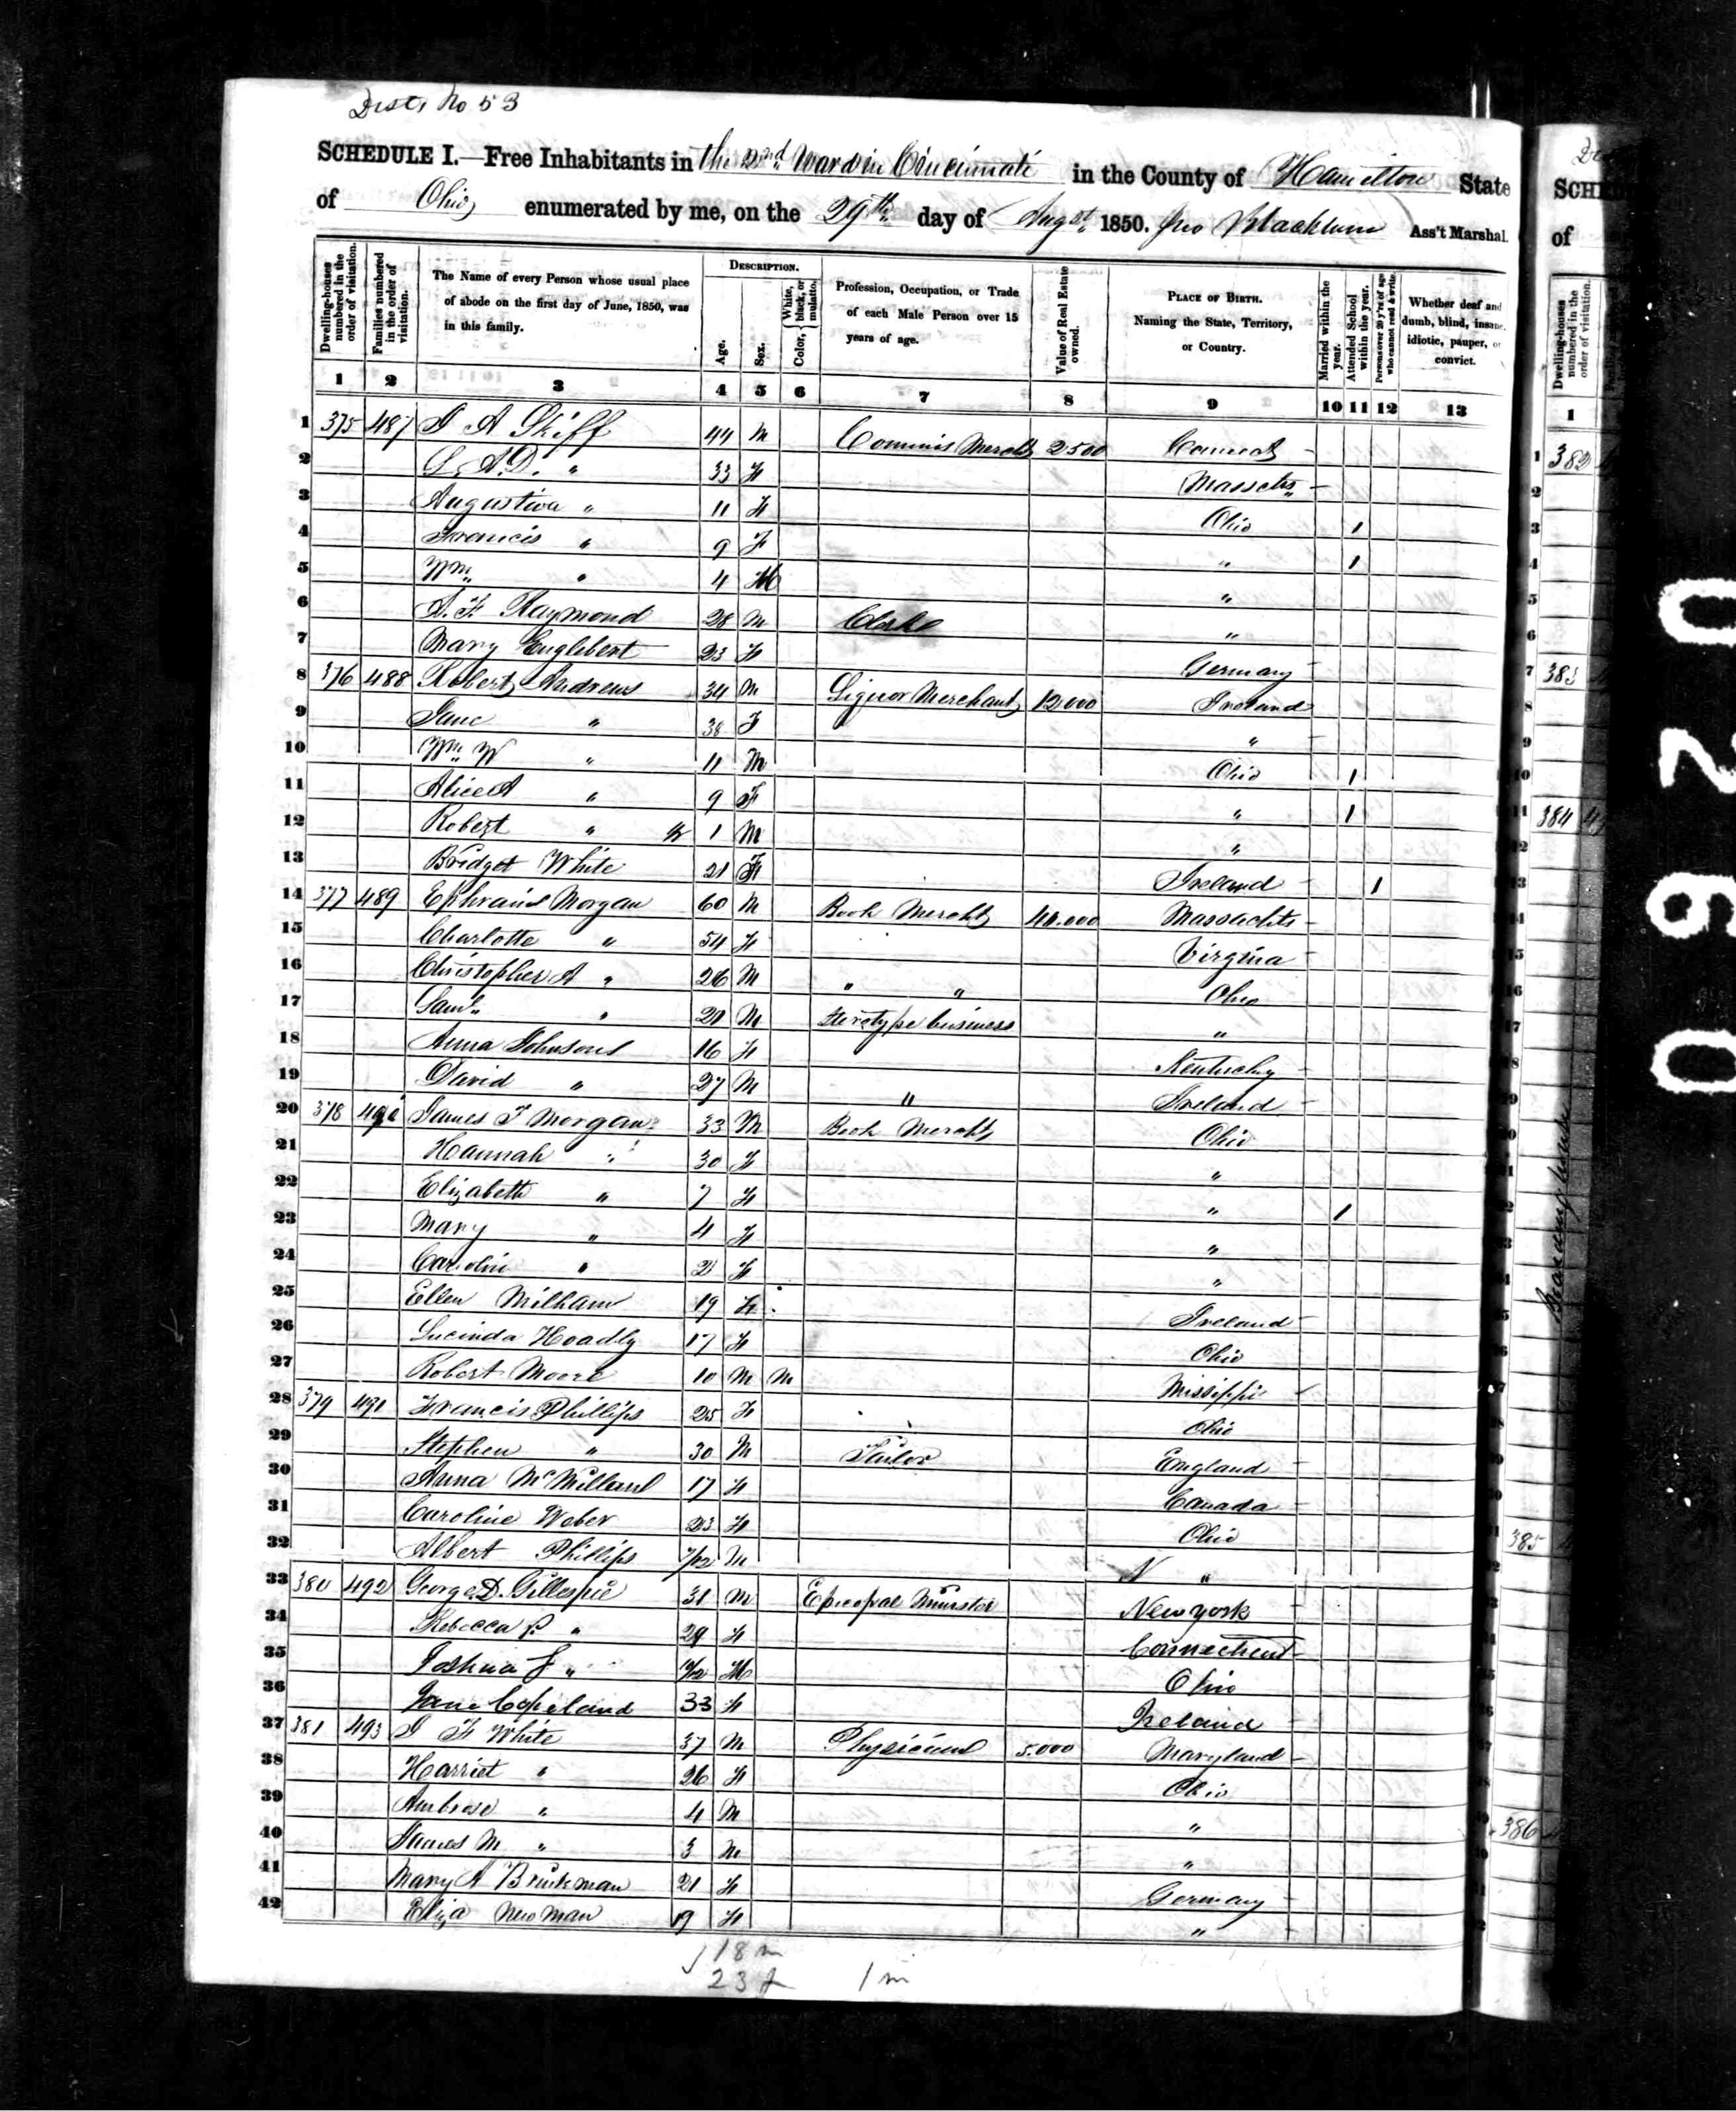 Dist. No 53
SCHEDULE I.—Free Inhabitants in the 2nd Ward in Cincinnati in the County of Hamilton State
of Ohio enumerated by me, on the 29th day of Augst 1850. Jno Ass't Marshal.
Dwelling-houses numbered in the order of visitation.
Families numbered in the order of visitation.
The Name of every Person whose usual place of abode on the first day of June, 1850, was in this family.
DESCRIPTION.
Age.
Sex.
Color, { White, black, or mulatto.
Profession, Occupation, or Trade of each Male Person over 15 years of age.
Value of Real Estate owned.
PLACE OF BIRTH. Naming the State, Territory, or Country.
Married within the year.
Attended School within the year.
Persons over 20 y'rs of age who cannot read & write.
Whether deaf and dumb, blind, insane, idiotic, pauper, or convict.
1 2 3 4 5 6 7 8 9 10 11 12 13
1 375 487 A Shiff 44 M Commis Mercht 2500 Connect
2 A.D. " 33 F Masschts
3 Augustiva " 11 F Ohio 1
4 Francis " 9 F " 1
5 Wm " 4 M "
6 A. F Raymond 28 M Clerk "
7 Mary Englebert 23 F Germany
8 376 488 Robert Andrews 34 M Liquor Merchant 12,000 Ireland
9 Jane " 38 F "
10 Wm W " 11 M Ohio 1
11 Alice A " 9 F " 1
12 Robert " 1 M "
13 Bridget White 21 F Ireland 1
14 377 489 Ephraim Morgan 60 M Book Mercht 40.000 Massachts
15 Charlotte " 54 F Virginia
16 Christopher A " 26 M " " Ohio
17 Saml " 21 M Sterotype business "
18 Anna Johnson 16 F Kentucky
19 David " 27 M " Ireland
20 378 490 James T Morgan 33 M Book Mercht Ohio
21 Hannah " 30 F "
22 Elizabeth " 7 F " 1
23 Mary " 4 F "
24 Carolin " 2 F "
25 Ellen Milham 19 F Ireland
26 Lucinda Hoadly 17 F Ohio
27 Robert Moore 10 M M Missippi
28 379 491 Francis Phillips 25 F Ohio
29 Stephen " 30 M Tailor England
30 Anna McMilland 17 F Canada
31 Caroline Weber 23 F Ohio
32 Albert Phillips 7/12 M "
33 380 492 George D. Gillespie 31 M Episcopal Minister New York
34 Rebecca P " 29 F Connecticut
35 Joshua J " M Ohio
36 Jane Copeland 33 F Ireland
37 381 493 J F White 37 M Physician 5.000 Maryland
38 Harriet " 26 F Ohio
39 Ambrose " 4 M "
40 James M " 3 M "
41 Mary A Brinkman 21 F Germany
42 Eliza Newman 19 F "
18 m
23 f 1 m
SCHE
of
Dwelling-houses numbered in the order of visitation.
1
1 382
7 383
11 384
385
386
09260